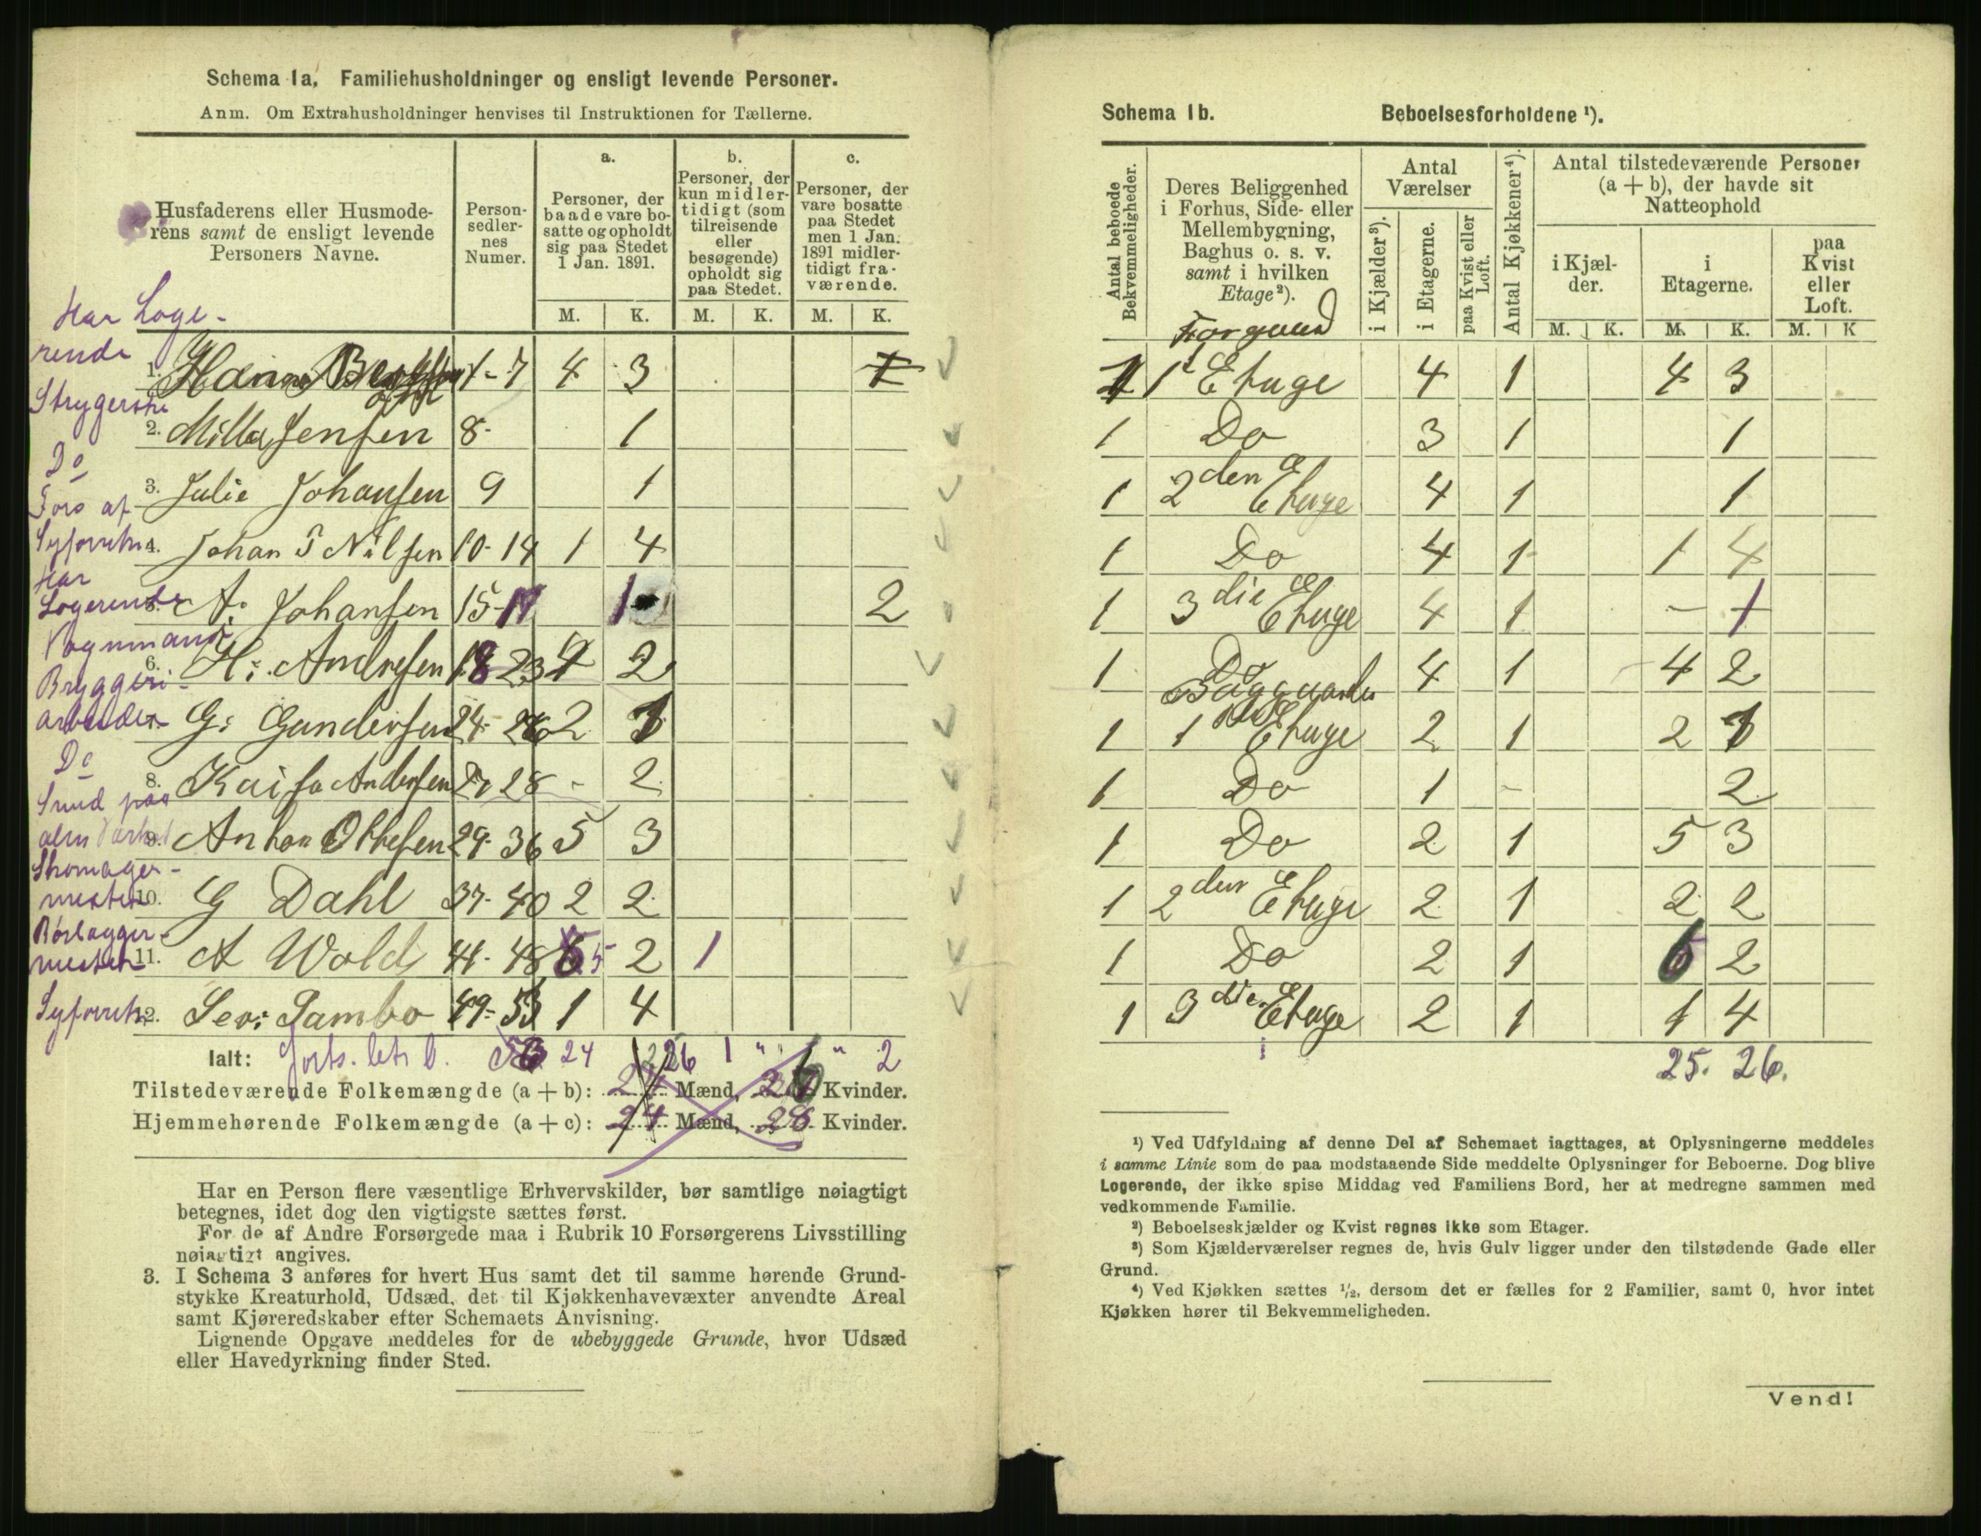 Schema 1a. Familiehusholdninger og ensligt levende Personer.
Anm. Om Extrahusholdninger henvises til Instruktionen for Tællerne.
Husfaderens eller Husmoderens samt de ensligt levende Personers Navne.
Personsedlernes Numer.
a.
Personer, der baade vare bosatte og opholdt sig paa Stedet 1 Jan. 1891.
b.
Personer, der kun midlertidigt (som tilreisende eller besøgende) opholdt sig paa Stedet.
c.
Personer, der vare bosatte paa Stedet men 1 Jan. 1891 midlertidigt fraværende.
M. K. M. K. M. K.
Har Loge-
rende
1. Hanna 1-7 4 3 1
Strygerske
2. Milla Jensen 8- 1
Do
3. Julie Johansen 9 1
Fors af
Syforretn
4. Johan T Nilsen 10-14 1 4
Har
Logerende
5. A. Johansen 15-17 1 2
Vognmand
6. H: Andresen 18 23 4 2
Bryggeri-
arbeider
G: Gundersen 24-26 2 1
Do
8. Kaisa Andersen 27 28 - 2
Smed paa
9. Anton Ottesen 29-36 5 3
Skomager-
mester
10. G Dahl 37-40 2 2
Rørlægger-
mester
11. A Wold 41-48 5 2 1
Syforretn
12. Sev: Tambo 49-53 1 4
Ialt: forts. 24 26 1 " " 2
Tilstedeværende Folkemængde (a + b): 24 Mænd, Kvinder.
Hjemmehørende Folkemængde (a + c): 24 Mænd, 28 Kvinder.
Har en Person flere væsentlige Erhvervskilder, bør samtlige nøiagtigt
betegnes, idet dog den vigtigste sættes først.
For de af Andre Forsørgede maa i Rubrik 10 Forsørgerens Livsstilling
nøiagtigt angives.
3. I Schema 3 anføres for hvert Hus samt det til samme hørende Grund-
stykke Kreaturhold, Udsæd, det til Kjøkkenhavevæxter anvendte Areal
samt Kjøreredskaber efter Schemaets Anvisning.
Lignende Opgave meddeles for de ubebyggede Grunde, hvor Udsæd
eller Havedyrkning finder Sted.
Schema 1b. Beboelsesforholdene ¹).
Antal beboede Bekvemmeligheder.
Deres Beliggenhed i Forhus, Side- eller Mellembygning, Baghus o. s. v. samt i hvilken Etage²).
Antal Værelser
i Kjælder³).
i Etagerne.
paa Kvist eller Loft.
Antal Kjøkkener⁴).
Antal tilstedeværende Personer (a + b), der havde sit Natteophold
i Kjælder.
i Etagerne.
paa Kvist eller Loft.
M. K. M. K. M. K
Forgaard
1 1 Etage 4 1 4 3
1 Do 3 1 1
1 2den Etage 4 1 1
1 Do 4 1 1 4
1 3die Etage 4 1 - 1
1 Do 4 1 4 2
Baggaarden
1 1 Etage 2 1 2 1
1 Do 1 - 2
1 Do 2 1 5 3
1 2den Etage 2 1 2 2
1 Do 2 1 6 2
1 3die Etage 2 1 1 4
25. 26.
¹) Ved Udfyldning af denne Del af Schemaet iagttages, at Oplysningerne meddeles
i samme Linie som de paa modstaaende Side meddelte Oplysninger for Beboerne. Dog blive
Logerende, der ikke spise Middag ved Familiens Bord, her at medregne sammen med
vedkommende Familie.
²) Beboelseskjælder og Kvist regnes ikke som Etager.
³) Som Kjælderværelser regnes de, hvis Gulv ligger under den tilstødende Gade eller
Grund.
⁴) Ved Kjøkken sættes ½, dersom det er fælles for 2 Familier, samt 0, hvor intet
Kjøkken hører til Bekvemmeligheden.
Vend!